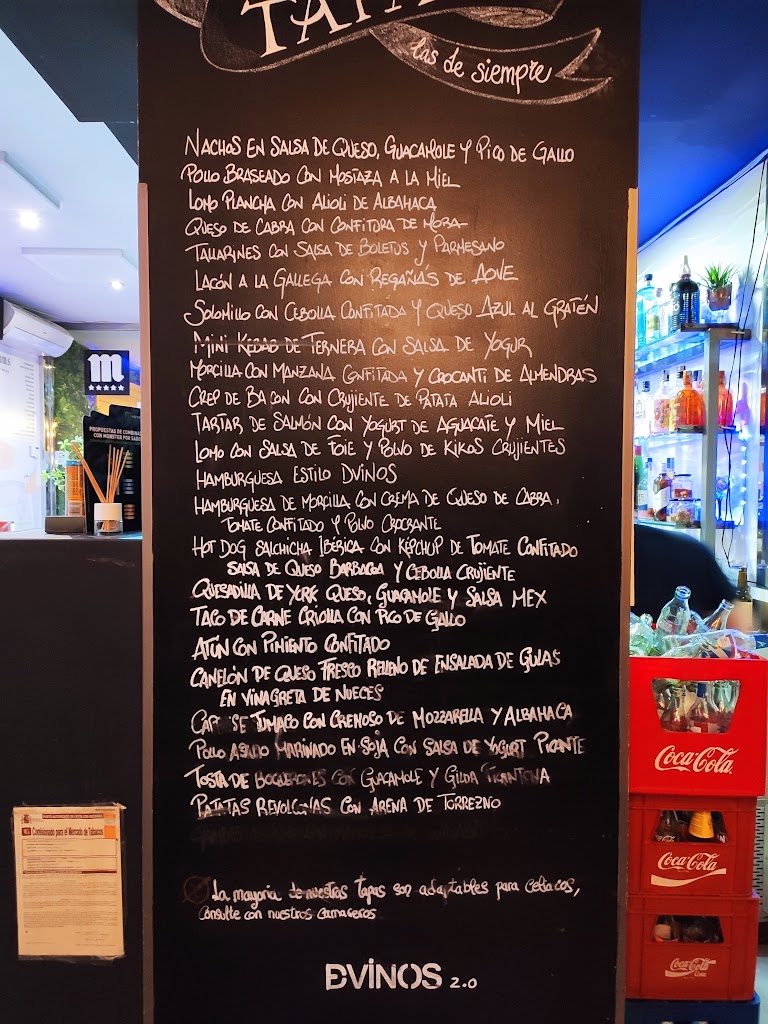 TAPAS
las de siempre
NACHOS EN SALSA DE QUESO, GUACAMOLE Y PICO DE GALLO
POLLO BRASEADO CON MOSTAZA A LA MIEL
LOMO PLANCHA CON ALIOLI DE ALBAHACA
QUESO DE CABRA CON CONFITURA DE MORA
TALLARINES CON SALSA DE BOLETUS Y PARMESANO
LACÓN A LA GALLEGA CON REGAÑAS DE AOVE
SOLOMILLO CON CEBOLLA CONFITADA Y QUESO AZUL AL GRATÉN
MINI KEBAB DE TERNERA CON SALSA DE YOGUR
MORCILLA CON MANZANA CONFITADA Y CROCANTI DE ALMENDRAS
CREP DE BACON CON CRUJIENTE DE PATATA ALIOLI
TARTAR DE SALMÓN CON YOGURT DE AGUACATE Y MIEL
LOMO CON SALSA DE FOIE Y POLVO DE KIKOS CRUJIENTES
HAMBURGUESA ESTILO DVINOS
HAMBURGUESA DE MORCILLA CON CREMA DE QUESO DE CABRA,
TOMATE CONFITADO Y POLVO CROCANTE
HOT DOG SALCHICHA IBÉRICA CON KEPCHUP DE TOMATE CONFITADO
SALSA DE QUESO BARBACOA Y CEBOLLA CRUJIENTE
QUESADILLA DE YORK QUESO, GUACAMOLE Y SALSA MEX
TACO DE CARNE CRIOLLA CON PICO DE GALLO
ATÚN CON PIMIENTO CONFITADO
CANELÓN DE QUESO FRESCO RELLENO DE ENSALADA DE GULAS
EN VINAGRETA DE NUECES
TUMACO CON CREMOSO DE MOZZARELLA Y ALBAHACA
POLLO ASADO MARINADO EN SOJA CON SALSA DE YOGURT PICANTE
TOSTA DE BOQUERONES CON GUACAMOLE Y GILDA PICANTONA
PATATAS REVOLCONAS CON ARENA DE TORREZNO
La mayoria de nuestras tapas son adaptables para celiacos,
consulte con nuestros camareros
DVINOS 2.0
m
PROPUESTAS DE COMBINA
CON MONSTER POR SABO
Comisionado para el Mercado de Tabacos
Coca-Cola
Coca-Cola
Coca-Cola